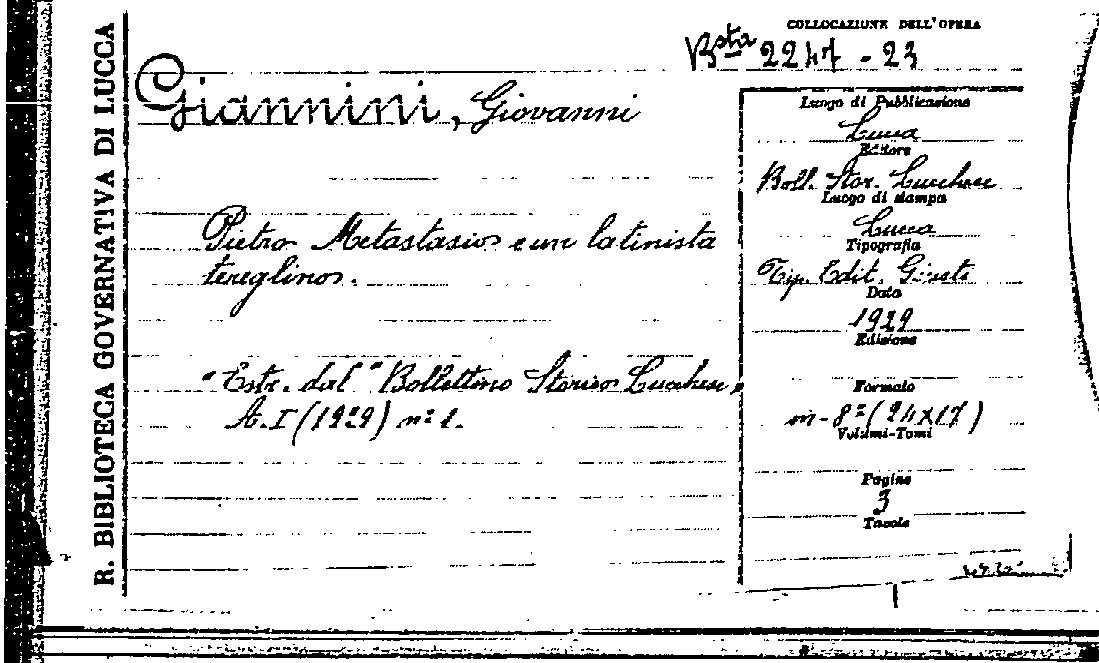 R. BIBLIOTECA GOVERNATIVA DI LUCCA
COLLOCAZIONE DELL'OPERA
Bsta 2247 - 23
Giannini, Giovanni
Pietro Metastasio e un latinista
tereglino.
"Estr. dal "Bollettino Storico Lucchese"
A. I (1929) n° 1.
Luogo di Pubblicazione
Lucca
Editore
Boll. Stor. Lucchese
Luogo di stampa
Lucca
Tipografia
Tip. Edit. Giusti
Data
1929
Edizione
Formato
in-8° (24x17)
Volumi-Tomi
Pagine
3
Tavole